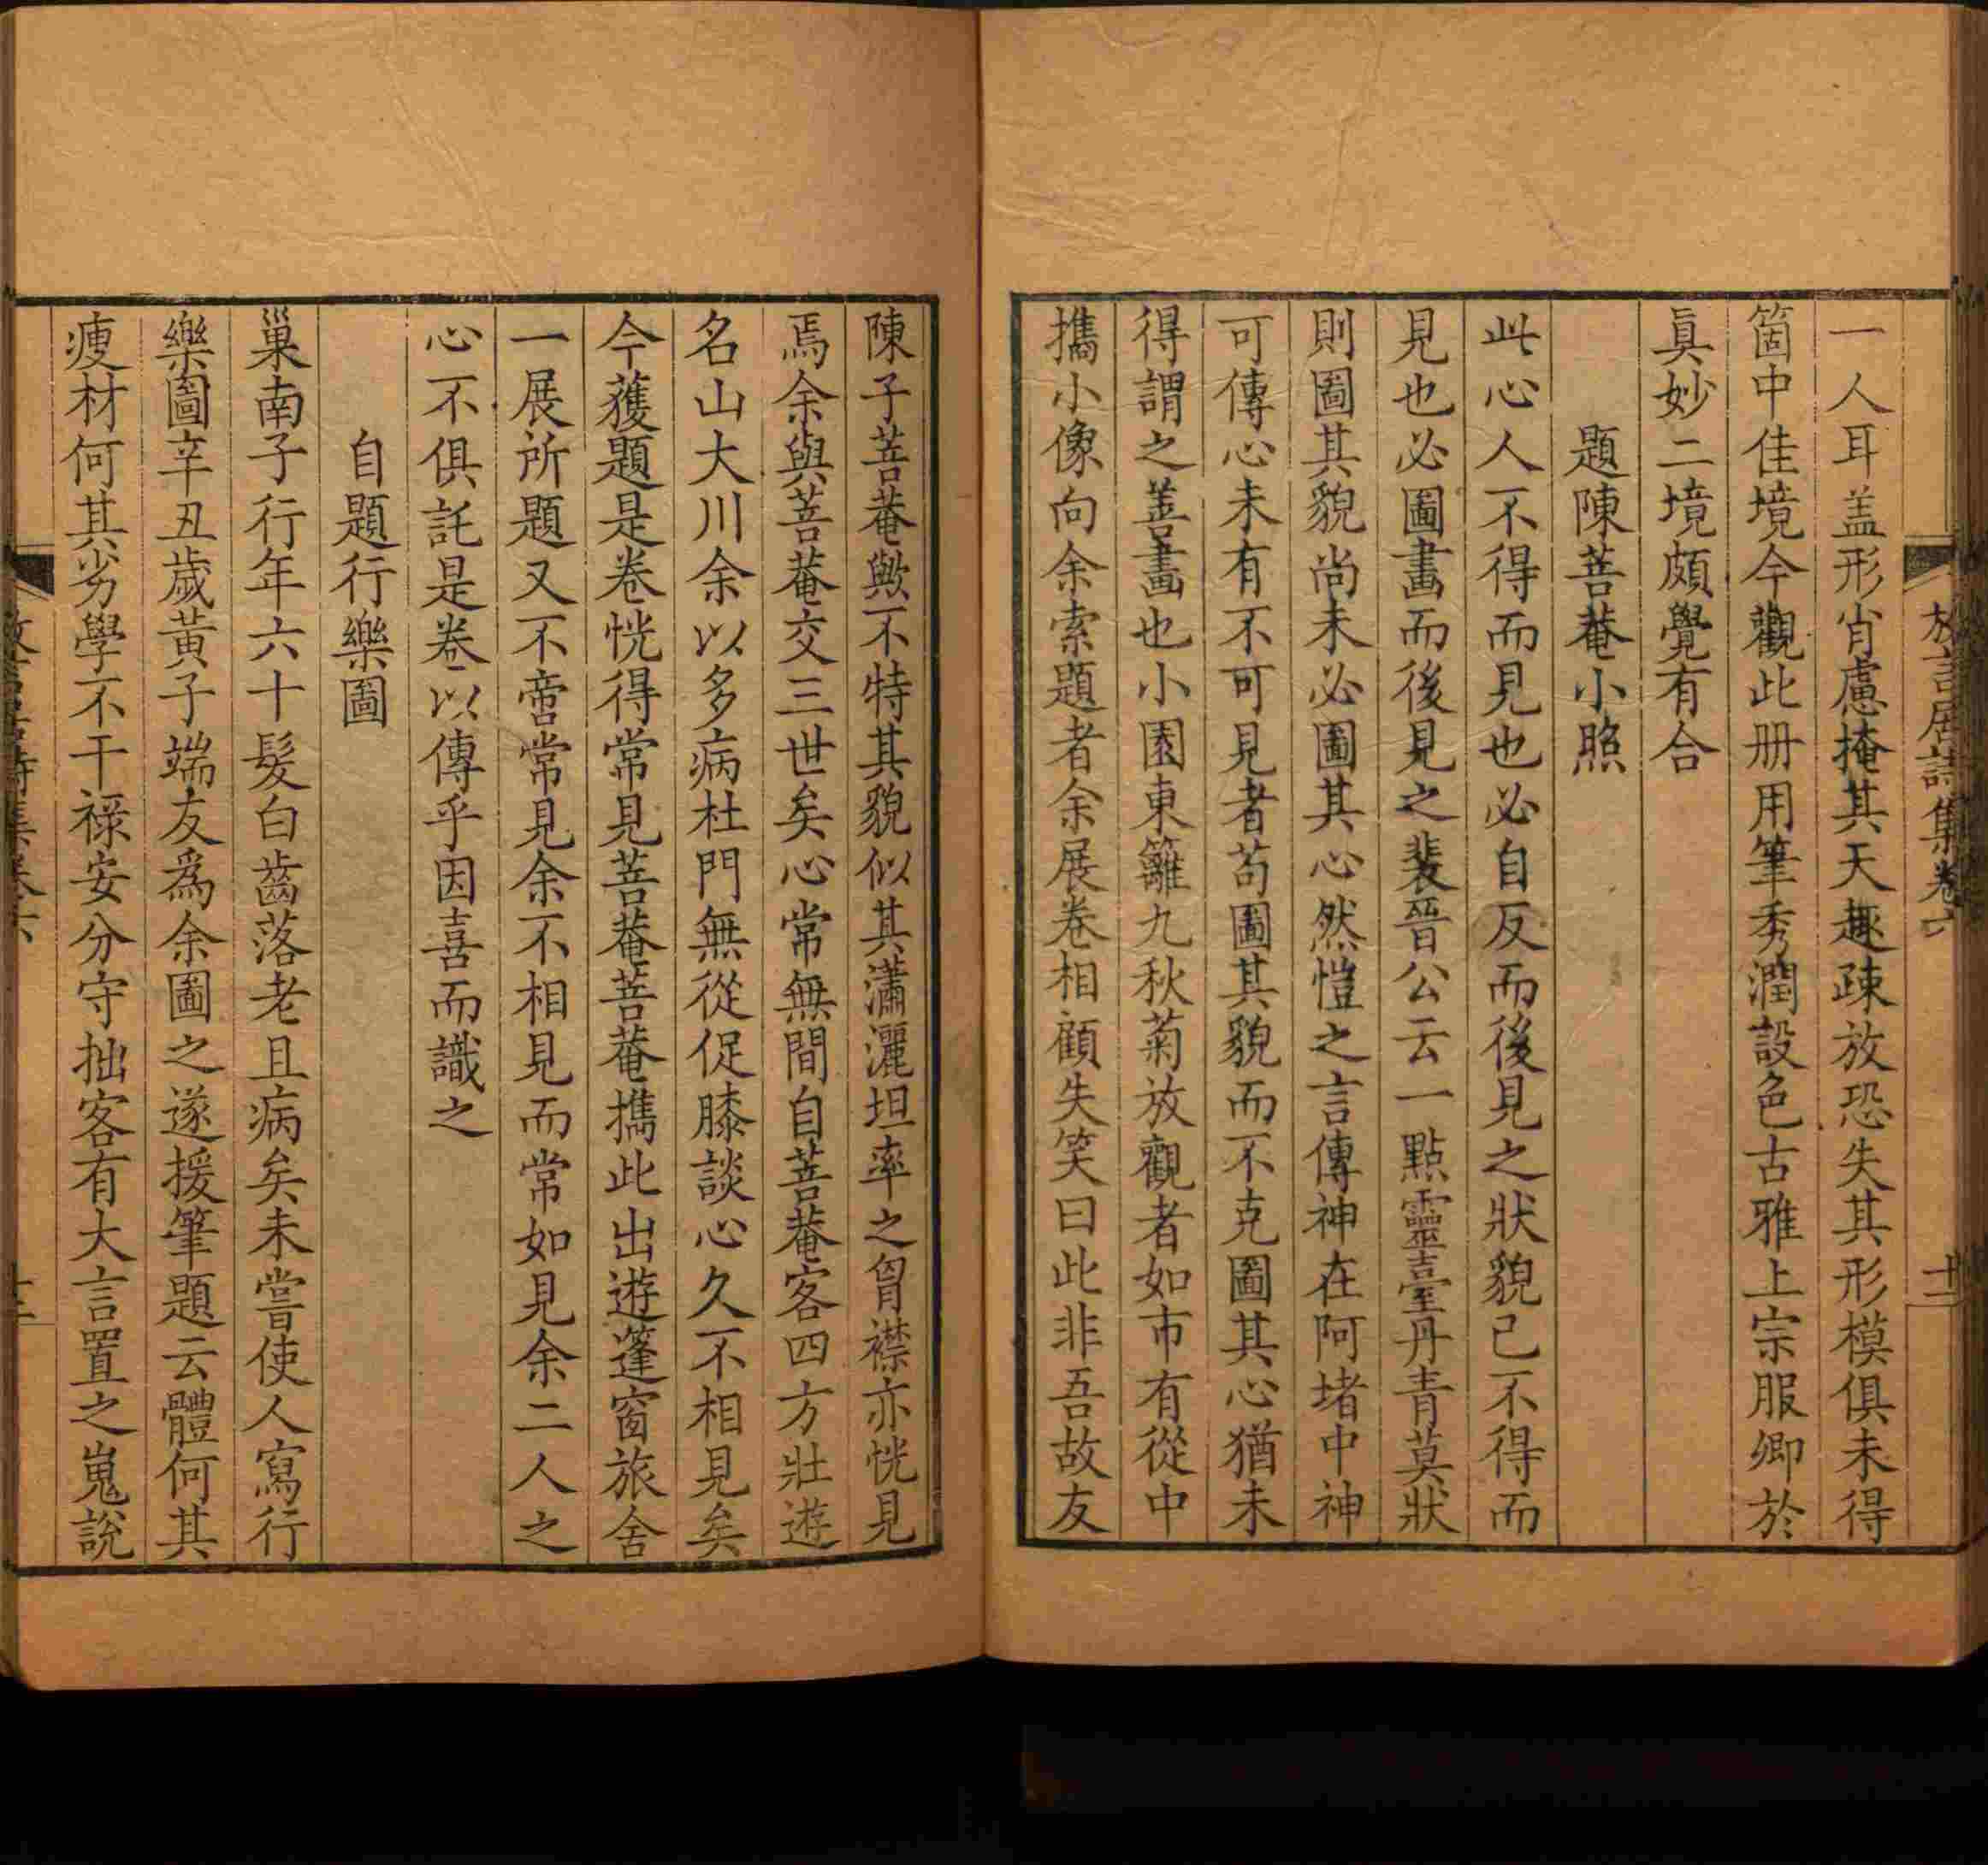 放言居詩集卷六
十二
一人耳盖形肖慮掩其天趣疎放恐失其形模俱未得
箇中佳境今觀此册用筆秀潤設色古雅上宗服卿於
眞妙二境頗覺有合
題陳菩菴小照
此心人不得而見也必自反而後見之狀貌己不得而
見也必圖畵而後見之裴晉公云一點靈臺丹青莫狀
則圖其貌尚未必圖其心然愷之言傳神在阿堵中神
可傳心未有不可見者苟圖其貌而不克圖其心猶未
得謂之善畵也小園東籬九秋菊放觀者如市有從中
攜小像向余索題者余展卷相顧失笑曰此非吾故友
陳子菩菴歟不特其貌似其瀟灑坦率之胷襟亦恍見
焉余與菩菴交三世矣心常無間自菩菴客四方壯遊
名山大川余以多病杜門無從促膝談心久不相見矣
今蒦題是卷恍得常見菩菴菩菴攜此出遊蓬窗旅舍
一展所題又不啻常見余不相見而常如見余二人之
心不俱託是卷以傳乎因喜而識之
自題行樂圖
巢南子行年六十髮白齒落老且病矣未嘗使人寫行
樂圖辛丑歲黃子端友爲余圖之遂援筆題云體何其
瘦材何其劣學不干祿安分守拙客有大言置之嵬說